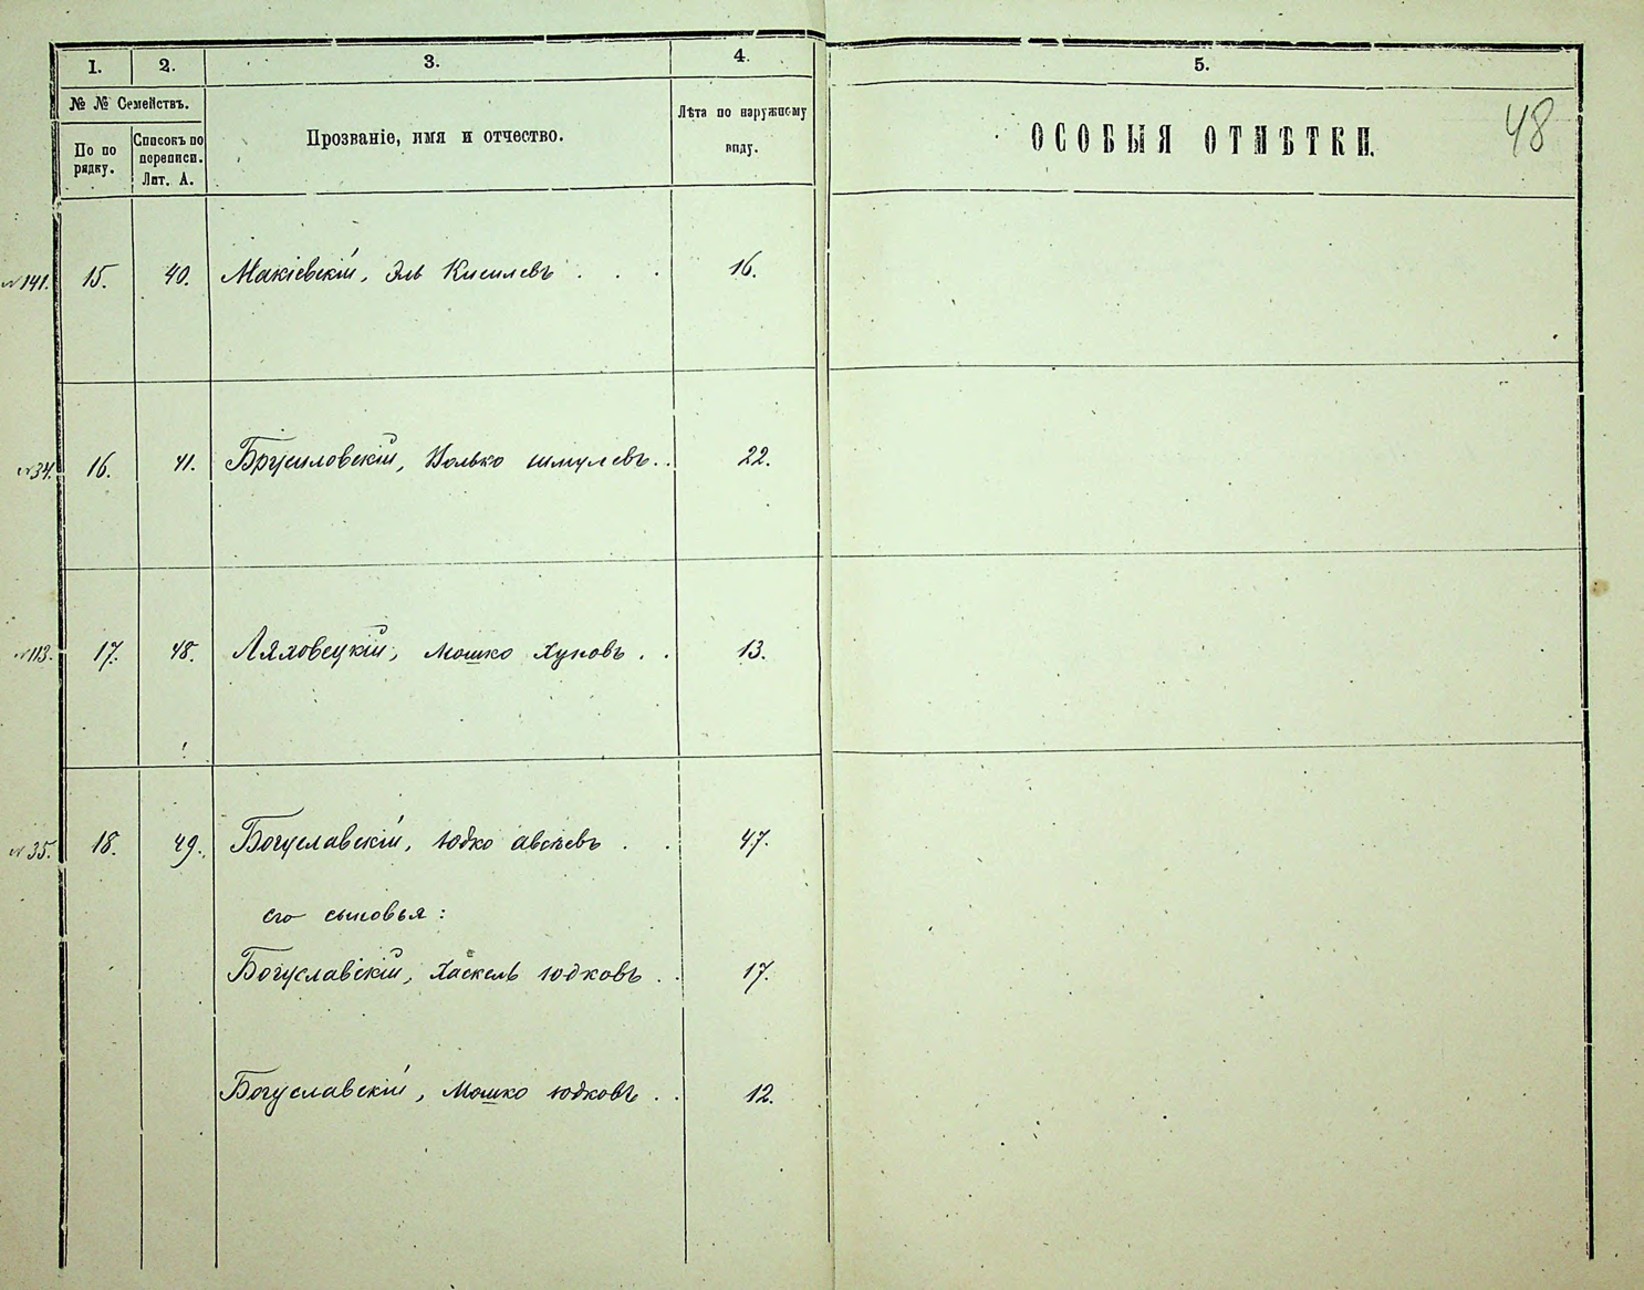 1. 2. 3. 4. 5.
№ № Семействъ.
По по рядку.
Списокъ по переписи. Лит. А.
Прозваніе, имя и отчество.
Лѣта по наружному виду.
ОСОБЫЯ ОТМѢТКИ.
48
№141. 15. 40. Макіевскій, Эль Кисилевъ . . . 16.
№34. 16. 41. Брусиловскій, Іолько Шмулевъ . . 22.
№113. 17. 48. Ляховецкій, Мошко Хуновъ . . 13.
№35. 18. 49. Богуславскій, Юдко Авсѣевъ . . 47.
его сыновья:
Богуславскій, Хаскель Юдковъ . . 17.
Богуславскій, Мошко Юдковъ . . 12.